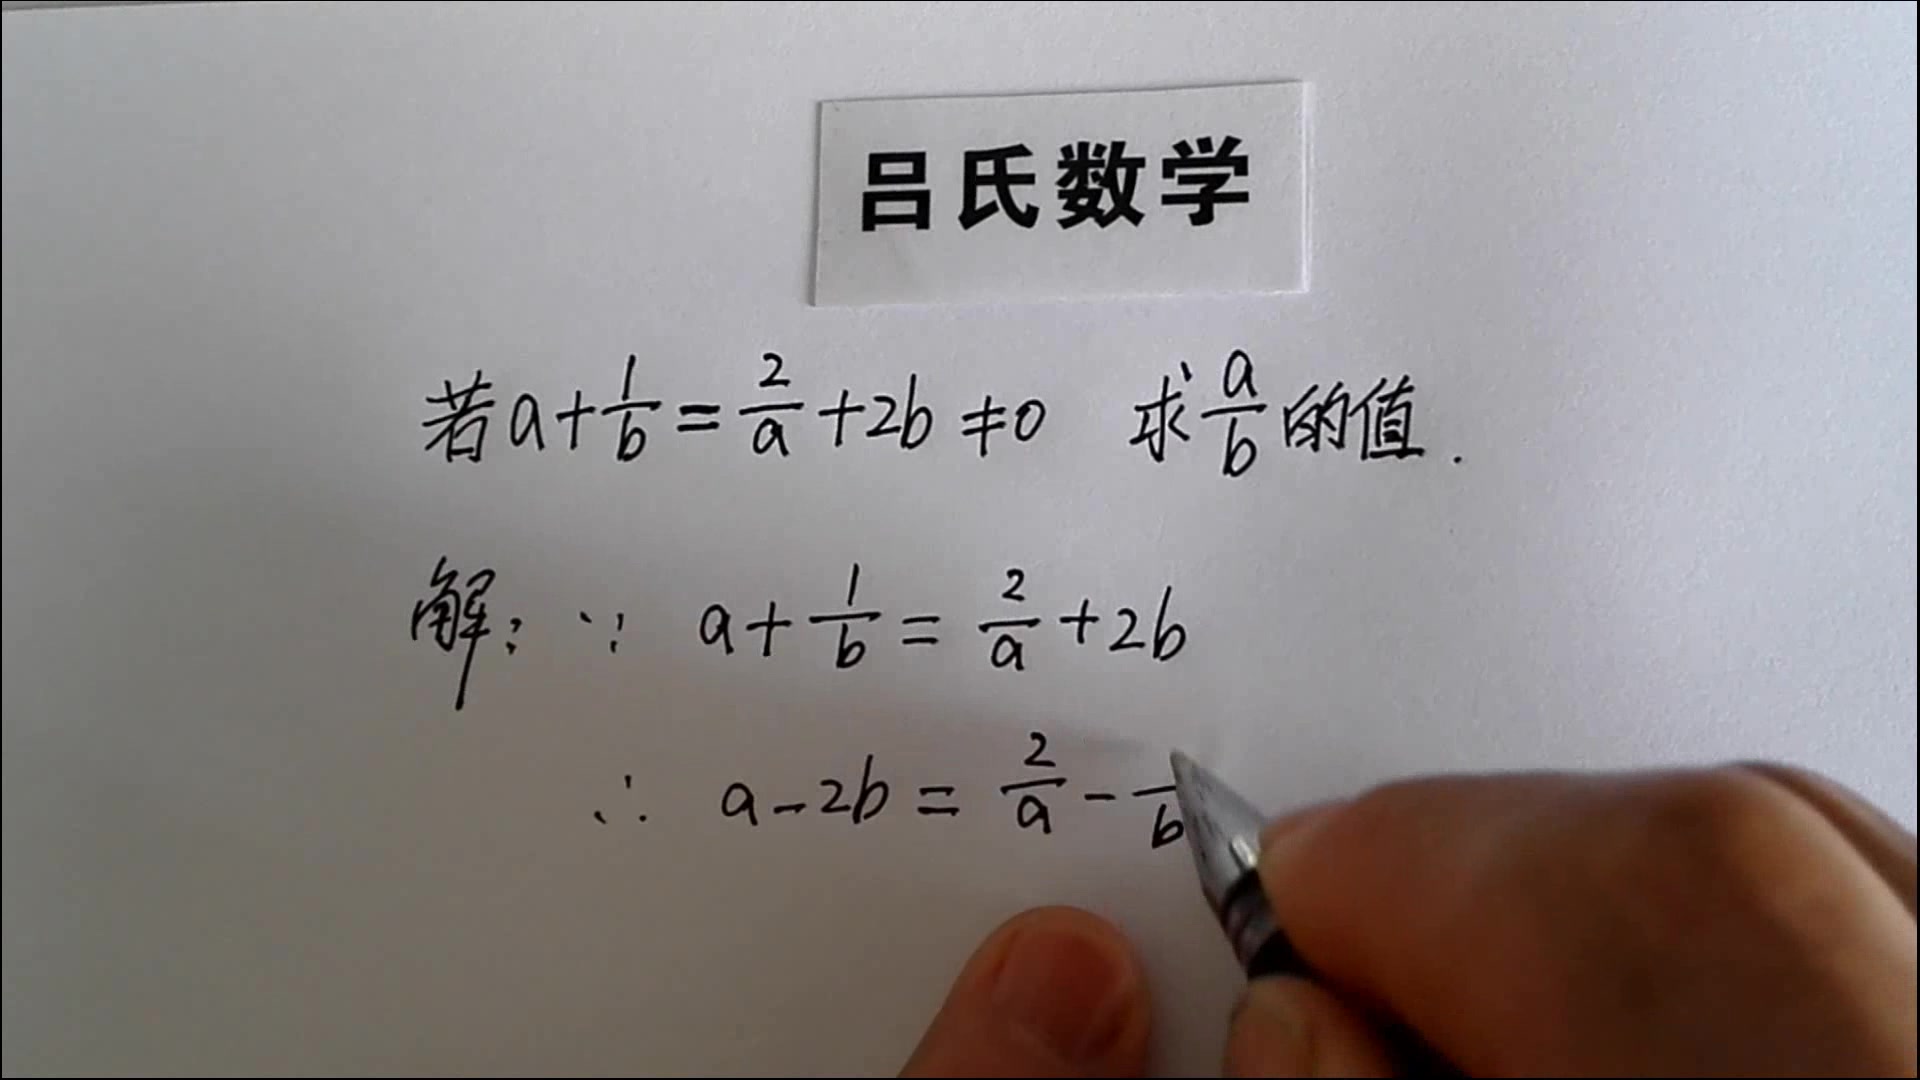 吕氏数学
若a+1/b=2/a+2b≠0 求a/b的值.
解:∵ a+1/b=2/a+2b
∴ a-2b=2/a-/b